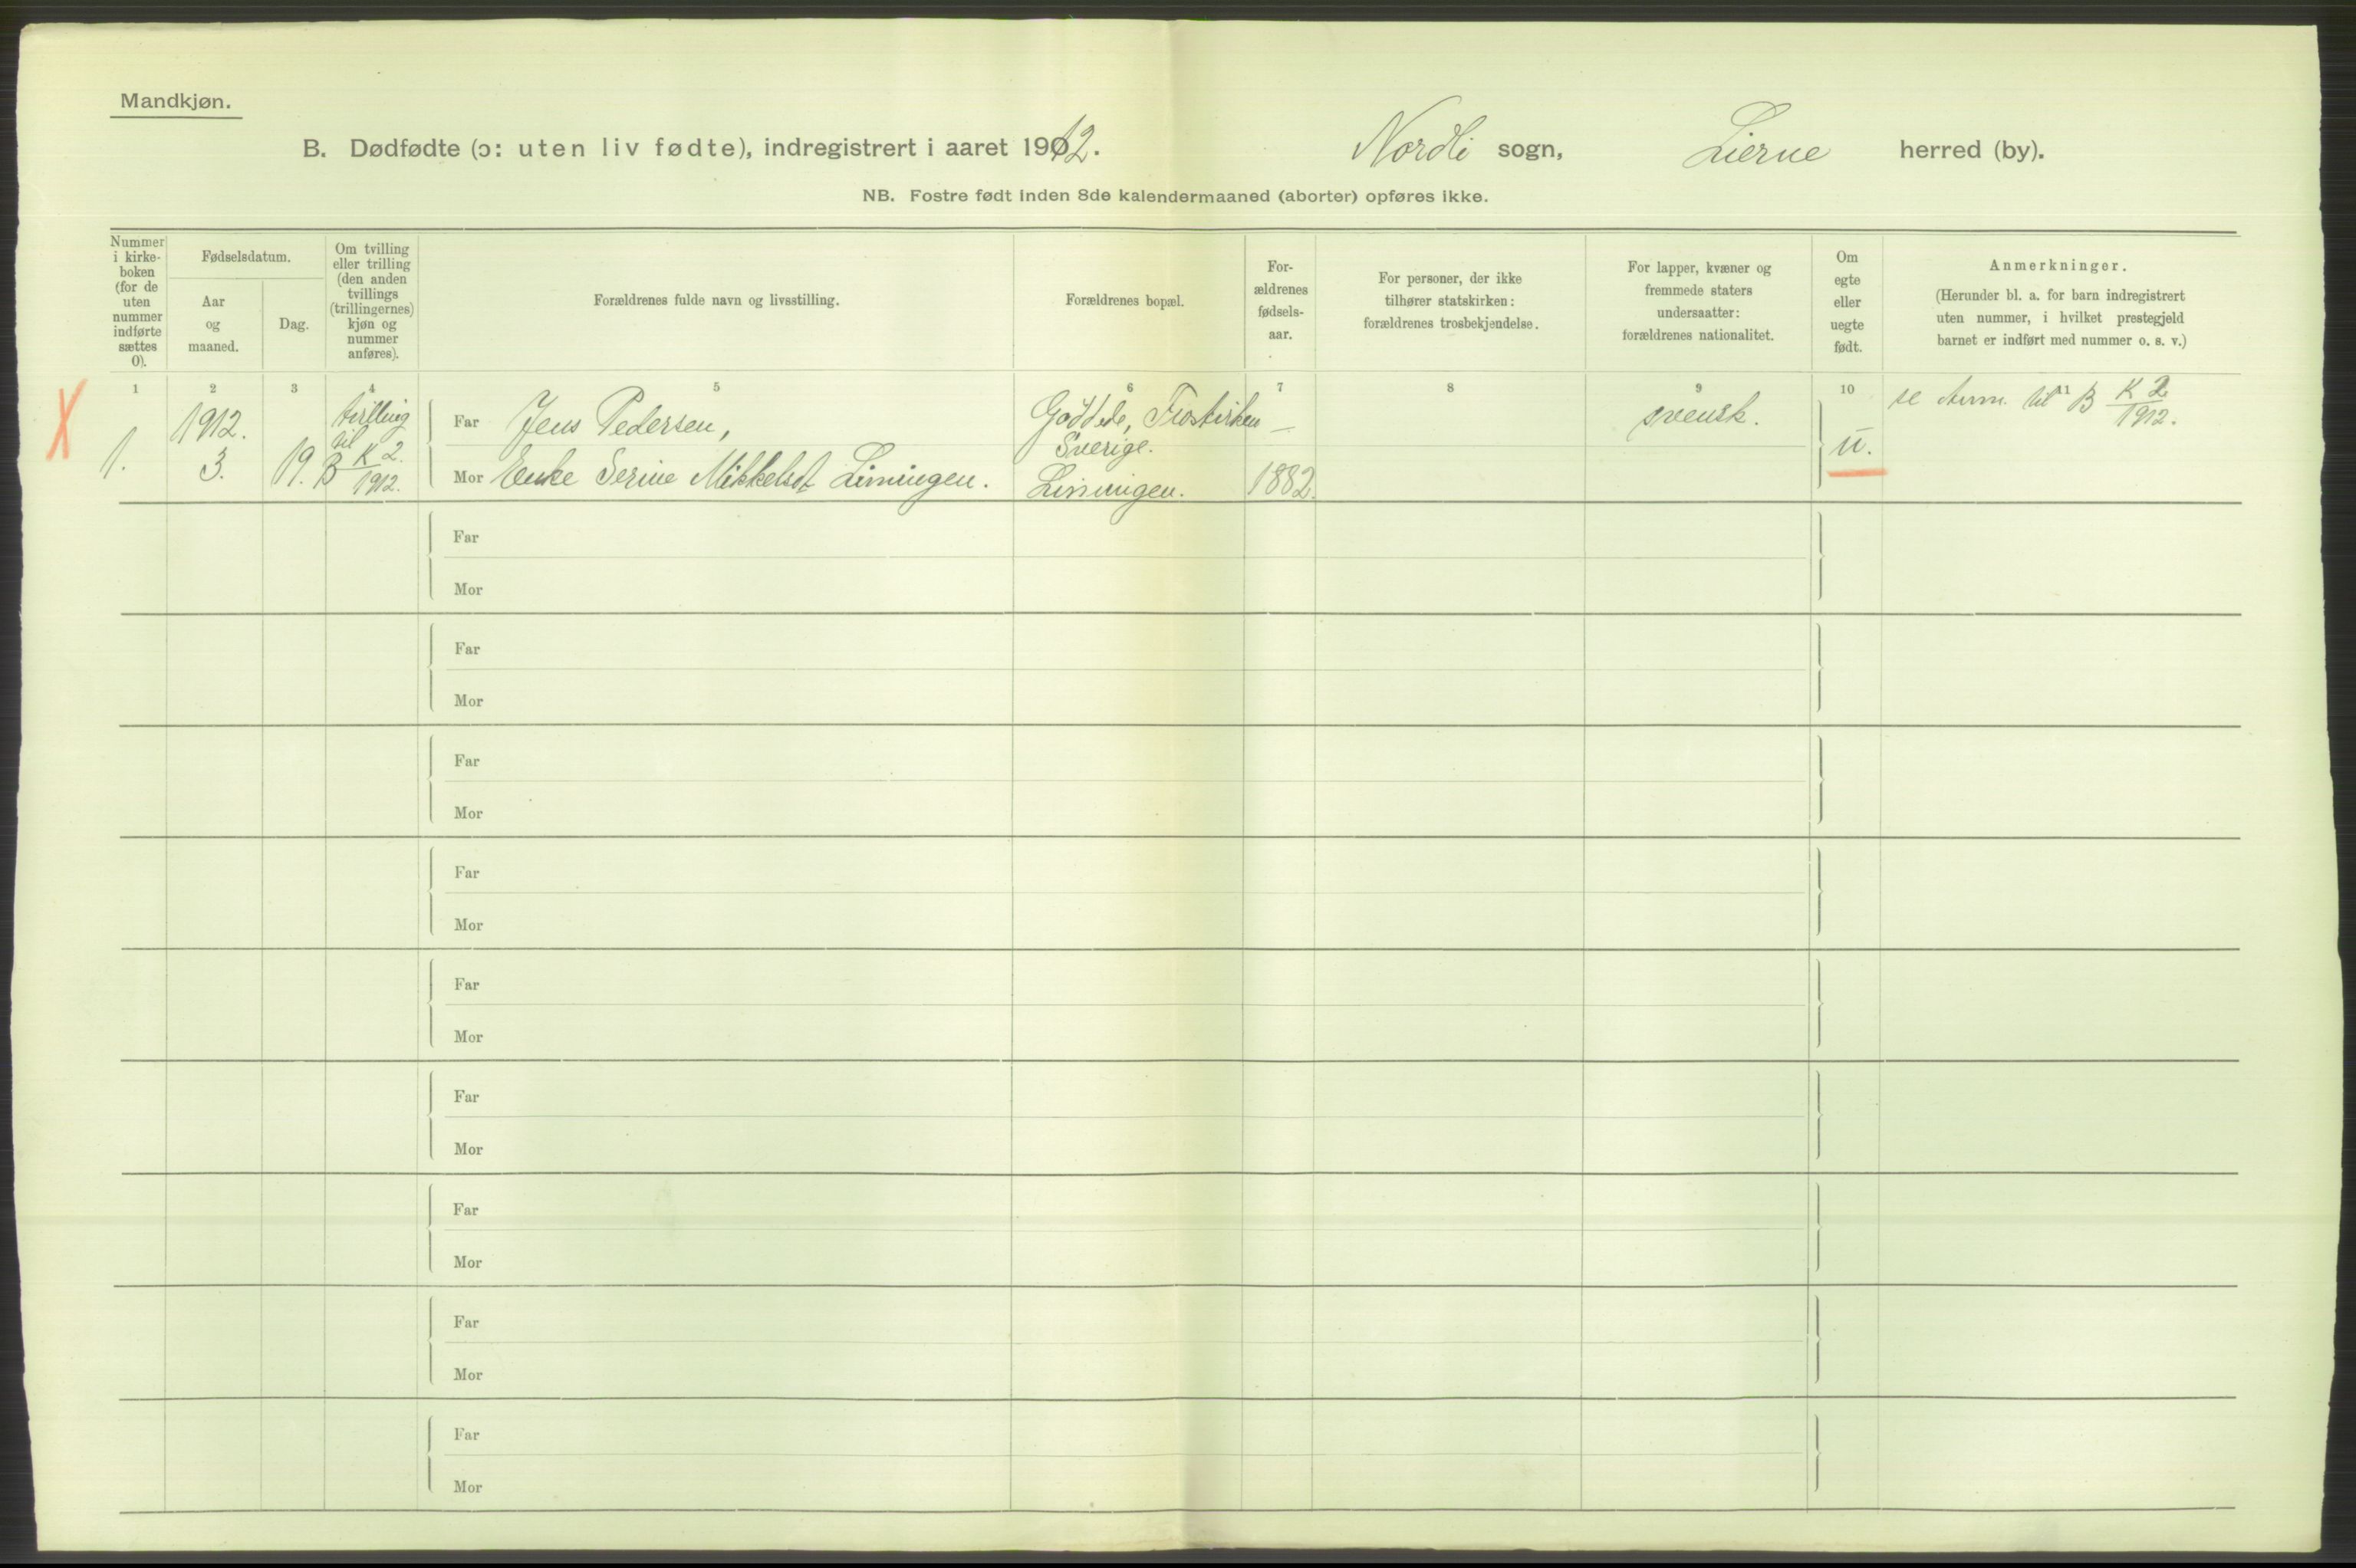 Mandkjøn.
B. Dødfødte (ɔ: uten liv fødte), indregistrert i aaret 1912. Nordli sogn, Lierne herred (by).
NB. Fostre født inden 8de kalendermaaned (aborter) opføres ikke.
Nummer
i kirke-
boken
(for de
uten
nummer
indførte
sættes
0).
Fødselsdatum.
Aar
og
maaned.
Dag.
Om tvilling
eller trilling
(den anden
tvillings
(trillingernes)
kjøn og
nummer
anføres).
Forældrenes fulde navn og livsstilling.
Forældrenes bopæl.
For-
ældrenes
fødsels-
aar.
For personer, der ikke
tilhører statskirken:
forældrenes trosbekjendelse.
For lapper, kvæner og
fremmede staters
undersaatter:
forældrenes nationalitet.
Om
egte
eller
uegte
født.
Anmerkninger.
(Herunder bl. a. for barn indregistrert
uten nummer, i hvilket prestegjeld
barnet er indført med nummer o. s. v.)
1 2 3 4 5 6 7 8 9 10 11
X
1.
1912.
3.
19.
tvilling
til
B K 2.
1912.
Far Jens Pedersen,
Mor Enke Serine Mikkelsdt Limingen.
Gäddede, Frostviken
Sverige.
Limingen.
—
1882.
svensk.
u.
se Anm. til B K 2
1912.
Far
Mor
Far
Mor
Far
Mor
Far
Mor
Far
Mor
Far
Mor
Far
Mor
Far
Mor
Far
Mor